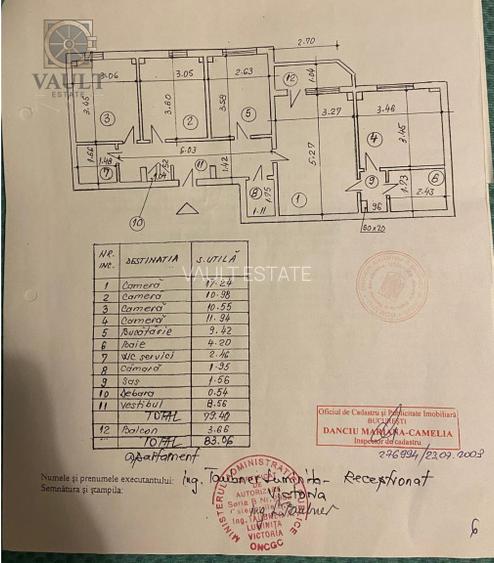 VAULT
ESTATE
2.70
3.06
3.05
2.63
12
1.04
3.27
3.46
3.45
3.60
3.59
3.45
3
2
5
4
1.56
1.48
6.03
1.42
5.27
7
11
8
1.75
1
9
1.73
6
2.43
1.11
96
10
50x20
NR. INC.
DESTINATIA
S. UTILĂ
VAULT ESTATE
1 Cameră 17.24
2 Cameră 10.98
3 Cameră 10.55
4 Cameră 11.94
5 Bucătărie 9.42
6 Baie 4.20
7 WC servici 2.46
8 Cămară 1.95
9 Sas 1.56
10 Debara 0.54
11 Vestibul 8.56
TOTAL 79.40
12 Balcon 3.66
TOTAL 83.06
apartament
Oficiul de Cadastru și Publicitate Imobiliară
BUCUREȘTI
DANCIU MARIANA-CAMELIA
Inspector de cadastru
276994/23.07.2003
Numele și prenumele executantului: ing. Taubner Luminita-
Victoria
Receptionat
Semnătura și ștampila:
MINISTERUL ADMINISTRAȚIEI PUBLICE
DE
AUTORIZ
Seria B Nr.
Ing. TAUBNER
LUMINIȚA
VICTORIA
ONCGC
6